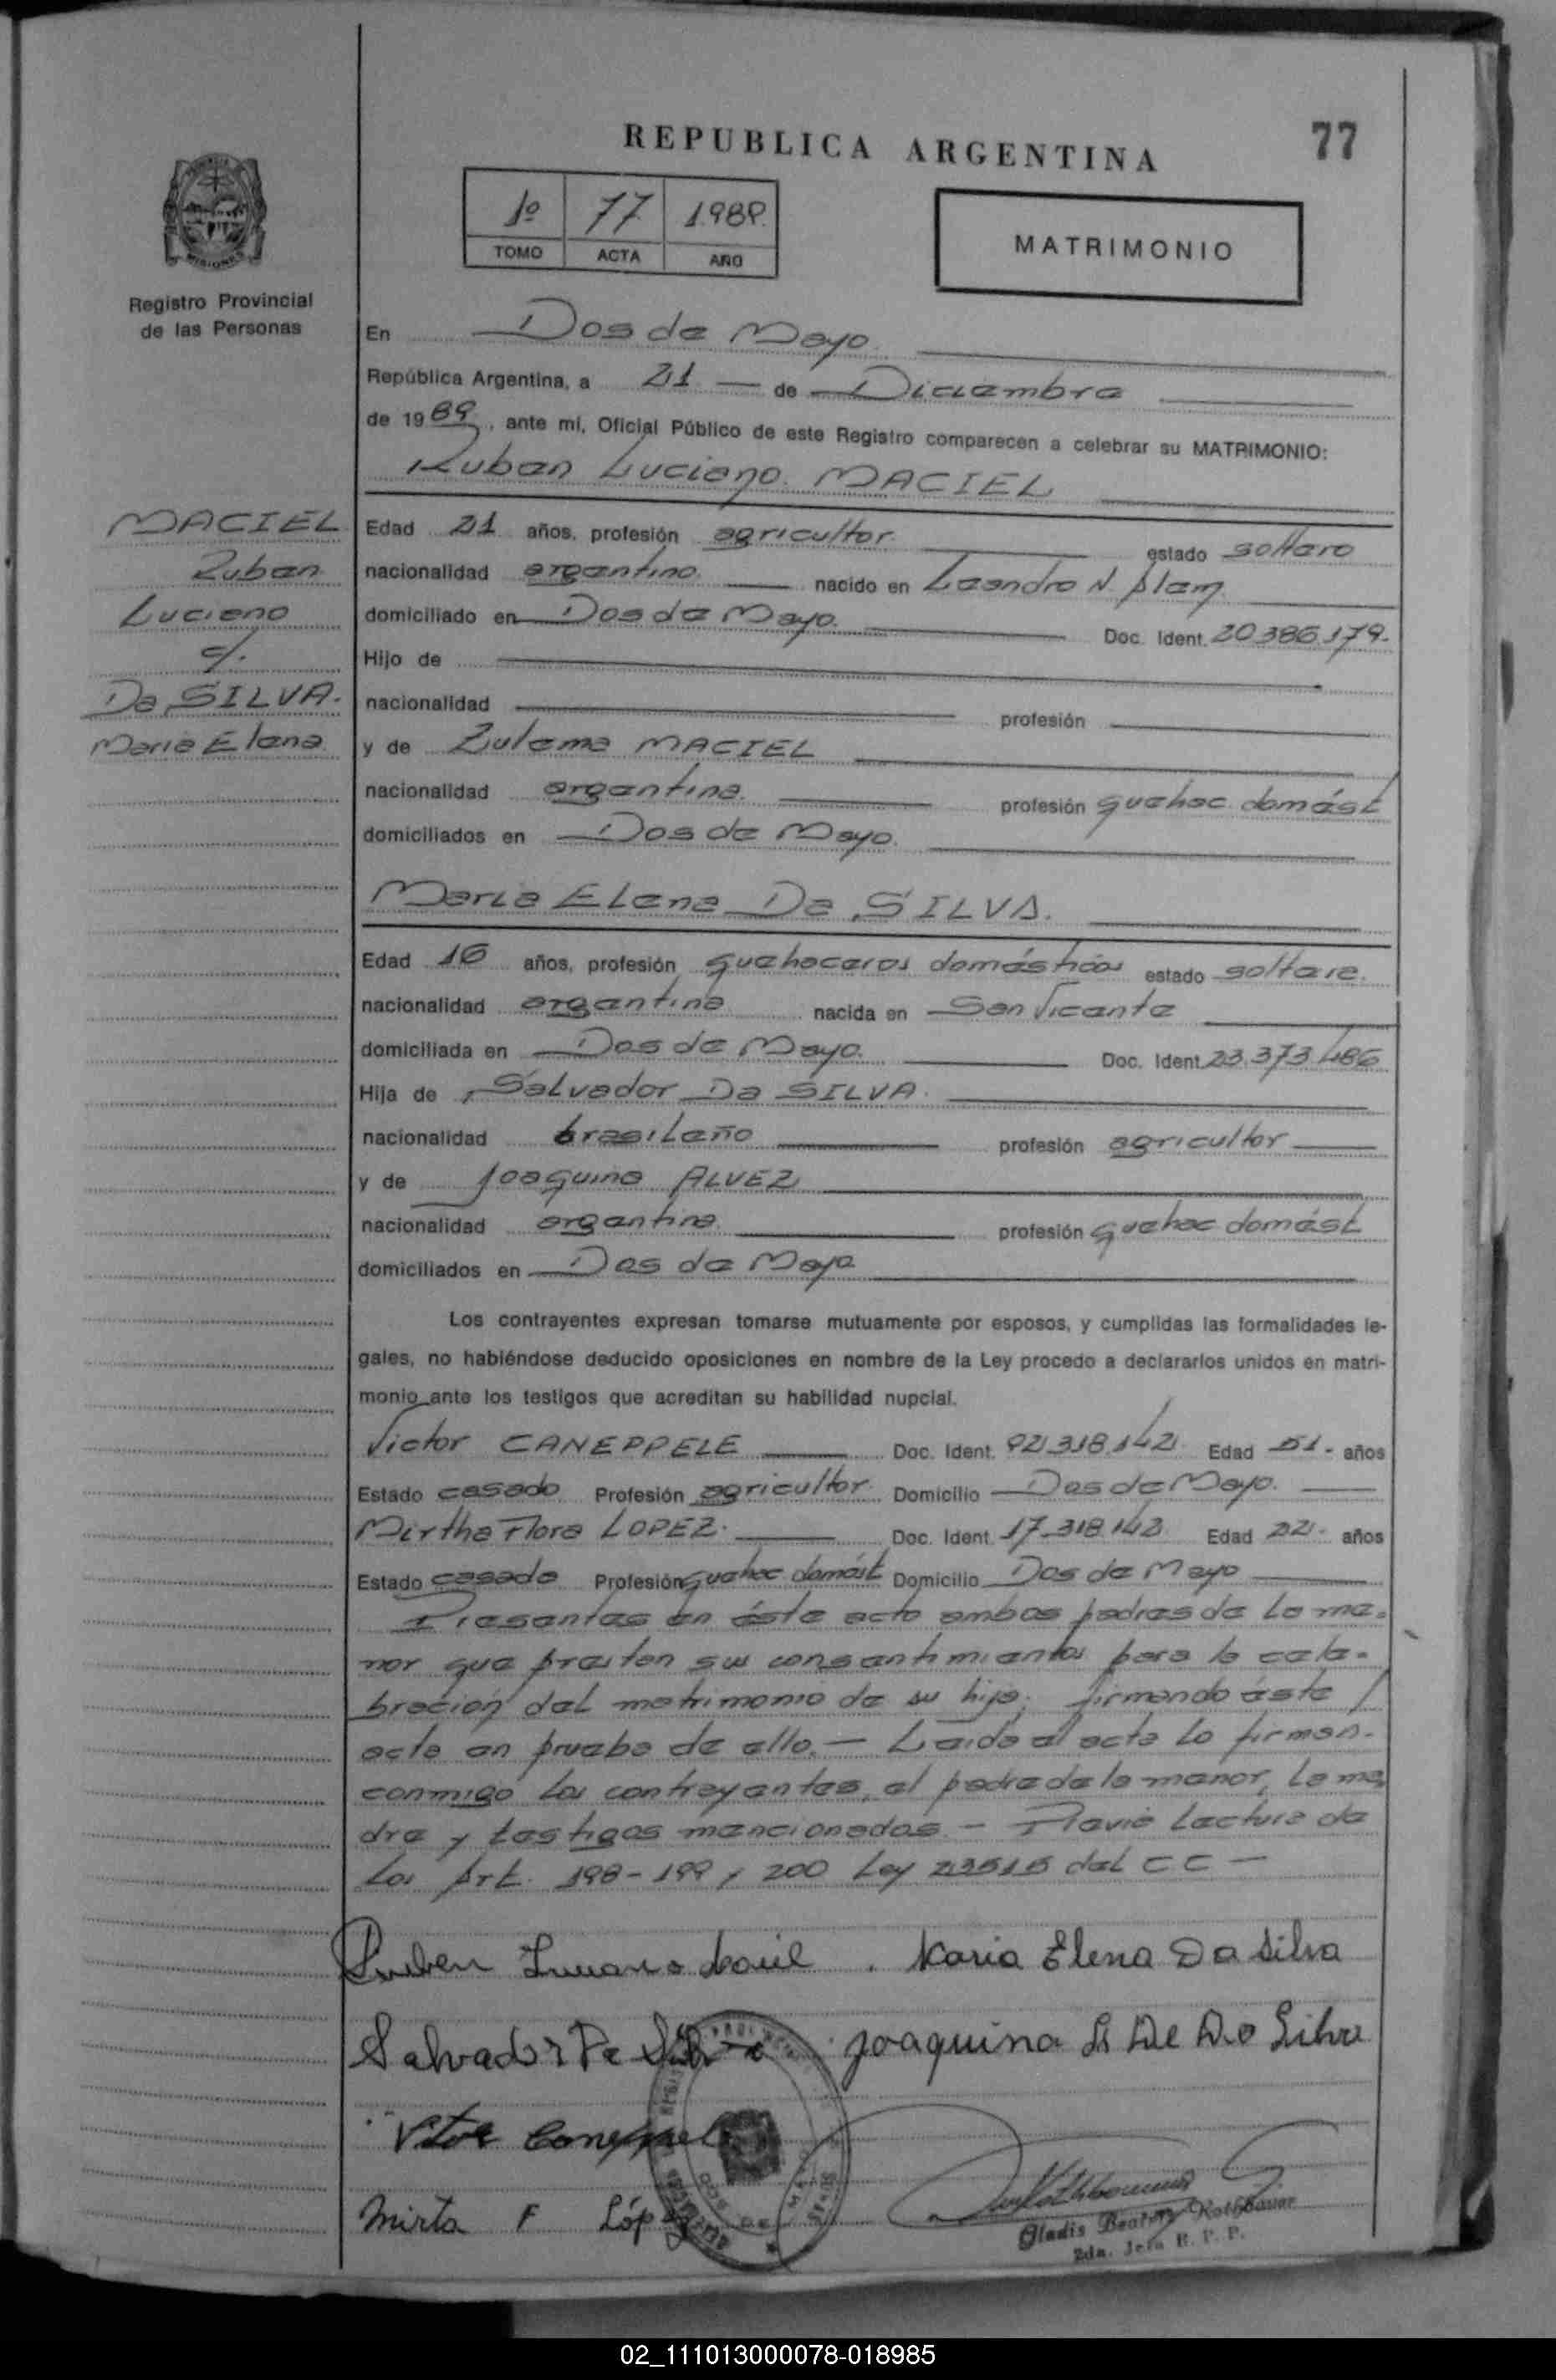 REPUBLICA ARGENTINA
77
1º 77 1989.
TOMO ACTA AÑO
MATRIMONIO
MISIONES
Registro Provincial
de las Personas
En Dos de Mayo.
República Argentina, a 21 — de Diciembre
de 1989, ante mí, Oficial Público de este Registro comparecen a celebrar su MATRIMONIO:
Ruben Luciano MACIEL
MACIEL
Ruben
Luciano
c/.
Da SILVA.
Maria Elena
Edad 21 años, profesión agricultor estado soltero
nacionalidad argentino. nacido en Leandro N. Alem
domiciliado en Dos de Mayo. Doc. Ident. 20.386.179.
Hijo de
nacionalidad profesión
y de Zulema MACIEL
nacionalidad argentina. profesión quehac. domést
domiciliados en Dos de Mayo.
Maria Elena Da SILVA.
Edad 16 años, profesión quehaceres domésticos estado soltera.
nacionalidad argentina nacida en San Vicente
domiciliada en Dos de Mayo. Doc. Ident. 23.373.486
Hija de Salvador Da SILVA.
nacionalidad brasileño profesión agricultor
y de Joaquina ALVEZ
nacionalidad argentina. profesión quehac domést
domiciliados en Dos de Mayo
Los contrayentes expresan tomarse mutuamente por esposos, y cumplidas las formalidades le-
gales, no habiéndose deducido oposiciones en nombre de la Ley procedo a declararlos unidos en matri-
monio ante los testigos que acreditan su habilidad nupcial.
Victor CANEPPELE Doc. Ident. 92.318.142 Edad 51.- años
Estado casado Profesión agricultor Domicilio Dos de Mayo.
Mirtha Flora LOPEZ. Doc. Ident. 17.318.142 Edad 22.- años
Estado casada Profesión quehac domést Domicilio Dos de Mayo
Presentes en éste acto ambos padres de la me-
nor que prestan sus consentimientos para la cele-
bración del matrimonio de su hija; firmando éste /
acta en prueba de ello.— Leída el acta lo firman.
conmigo los contrayentes, el padre de la menor, la ma
dre y testigos mencionados.— Previa lectura de
los Art. 198-199 y 200 Ley 23515 del CC —
Ruben Luciano Maciel. Maria Elena Da Silva
Salvador Da Silva Joaquina A De Da Silva
Vitor Caneppele
Mirta F López
Gladis Beatriz Rothbauer
2da. Jefa R. P. P.
02_111013000078-018985